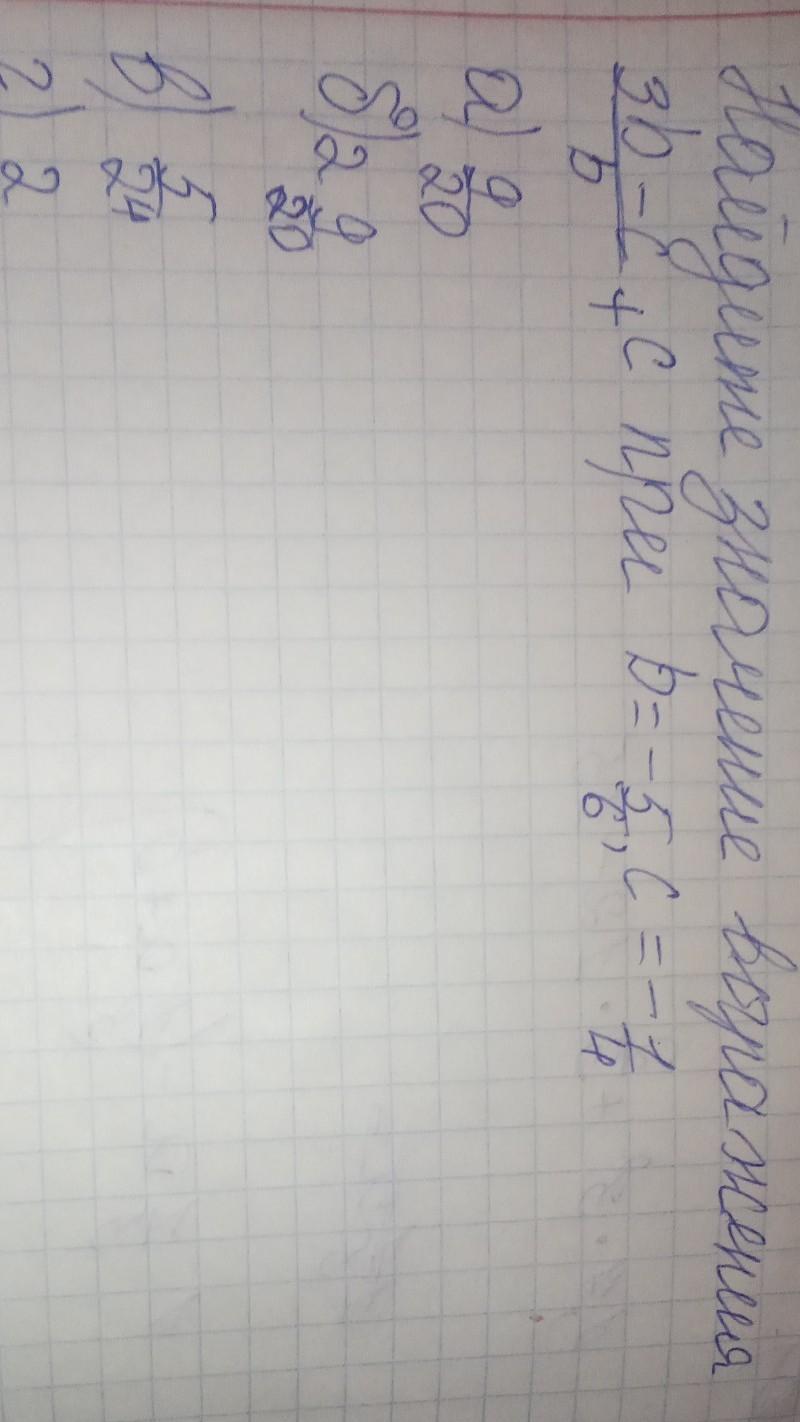 Найдите значение выражения
3b-c/b + c при b=-5/6, c=-1/4
а) 9/20
б) 2 9/20
в) 5/24
г) 2